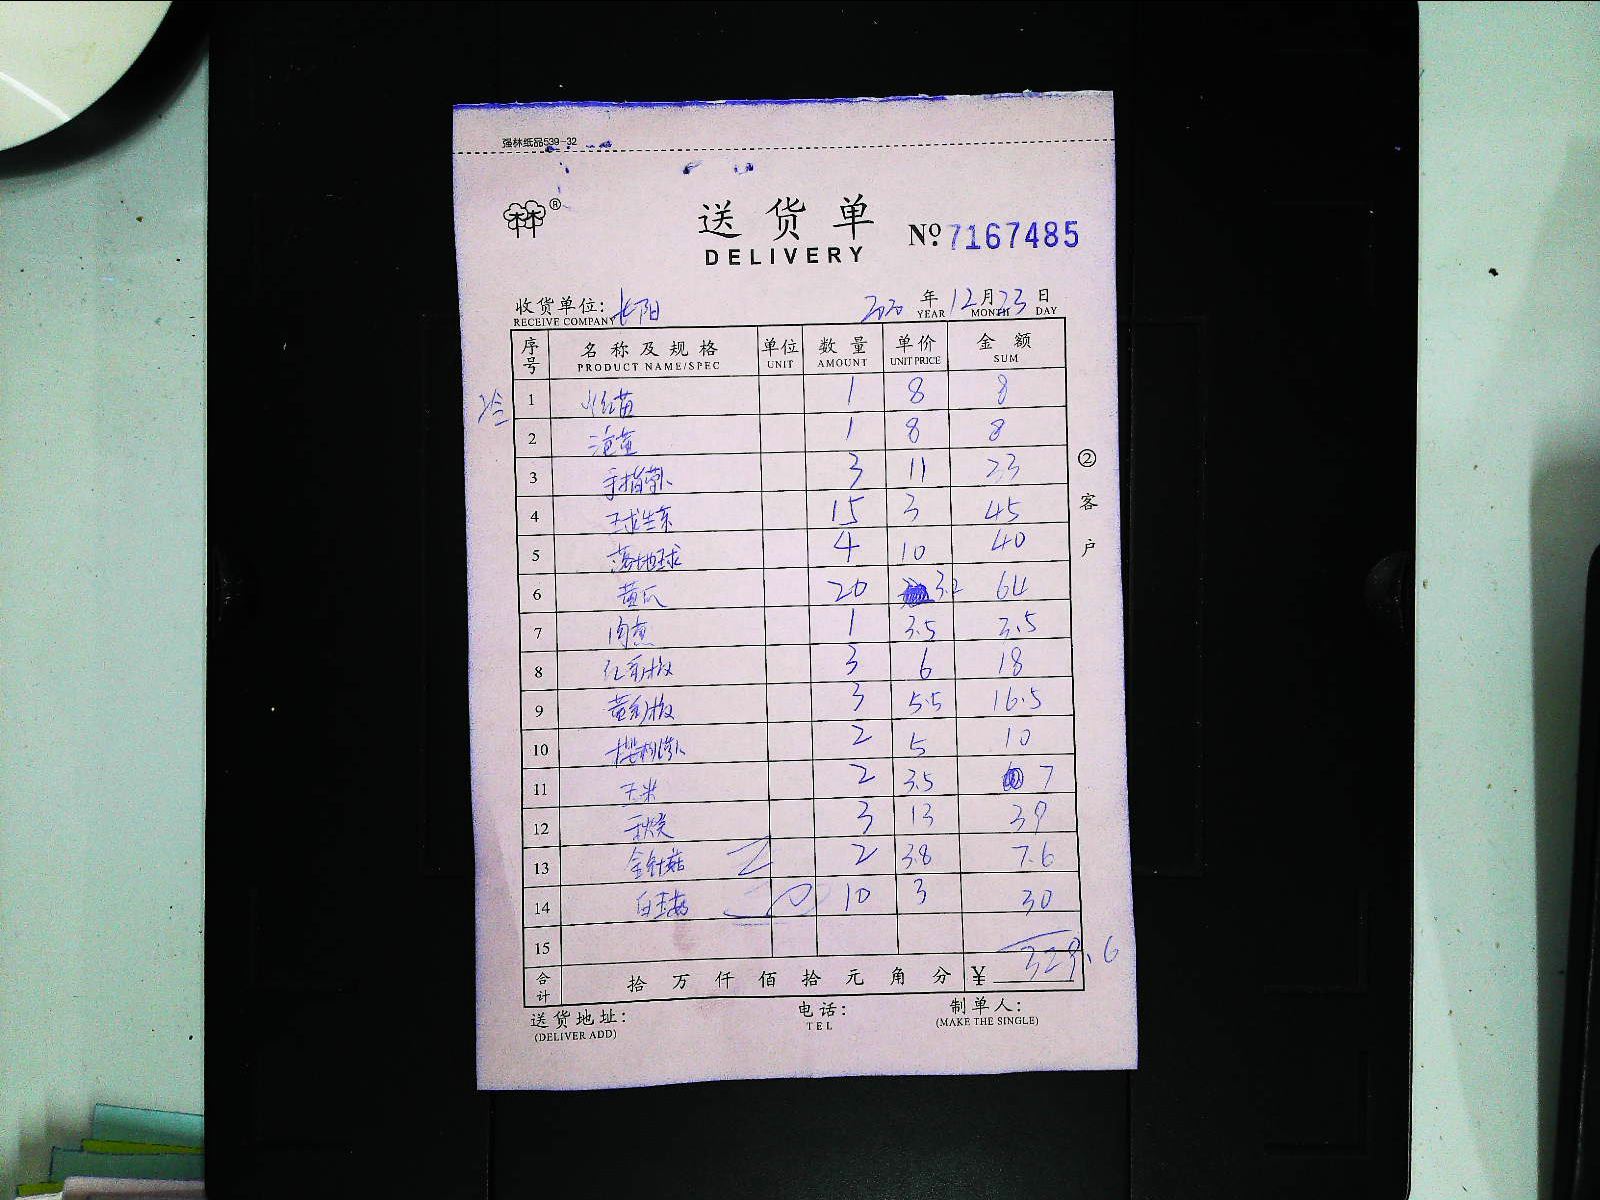 强林纸品539-32
®
送货单
DELIVERY
No. 7167485
收货单位: 长阳 2020 年 12 月 23 日
RECEIVE COMPANY YEAR MONTH DAY
序号 名称及规格 单位 数量 单价 金额
PRODUCT NAME/SPEC UNIT AMOUNT UNIT PRICE SUM
1 红苗 1 8 8
2 1 8 8
3 手指萝卜 3 11 33
4 球生菜 15 3 45
5 落地球 4 10 40
6 黄瓜 20 3.2 64
7 1 3.5 3.5
8 红彩椒 3 6 18
9 黄彩椒 3 5.5 16.5
10 樱桃萝卜 2 5 10
11 玉米 2 3.5 7
12 秋葵 3 13 39
13 金针菇 2 3.8 7.6
14 白玉菇 10 3 30
15
合计 拾 万 仟 佰 拾 元 角 分 ¥ 329.6
② 客户
送货地址: 电话: 制单人:
(DELIVER ADD) TEL (MAKE THE SINGLE)